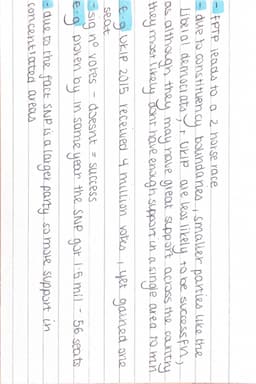 - FPTP leads to a 2 horse race
- due to constituency boundaries, smaller parties like the
Liberal democrats, + UKIP are less likely to be successful,
as although they may have great support across the country
they most likely dont have enough support in a single area to win
E.g UKIP 2015 received 4 million votes, yet gained one
seat
- sig nº votes - doesnt = success
e-g proven by in same year the SNP got 1.5 mil - 56 seats
- due to the fact SNP is a larger party so more support in
concentrated areas